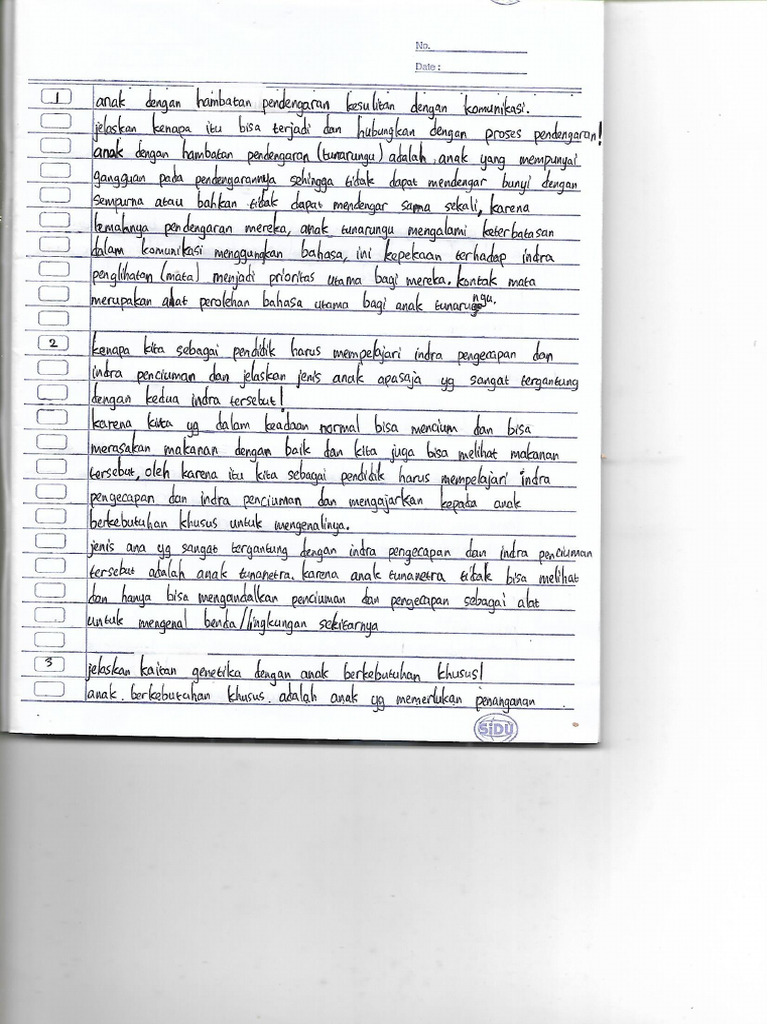 No.
Date :
1 anak dengan hambatan pendengaran kesulitan dengan komunikasi.
jelaskan kenapa itu bisa terjadi dan hubungkan dengan proses pendengaran!
anak dengan hambatan pendengaran (tunarungu) adalah anak yang mempunyai
gangguan pada pendengarannya sehingga tidak dapat mendengar bunyi dengan
sempurna atau bahkan tidak dapat mendengar sama sekali, karena
lemahnya pendengaran mereka, anak tunarungu mengalami keterbatasan
dalam komunikasi menggunakan bahasa, ini kepekaan terhadap indra
penglihatan (mata) menjadi prioritas utama bagi mereka. kontak mata
merupakan alat perolehan bahasa utama bagi anak tunarungu.
2 kenapa kita sebagai pendidik harus mempelajari indra pengecapan dan
indra penciuman dan jelaskan jenis anak apasaja yg sangat tergantung
dengan kedua indra tersebut!
karena kita yg dalam keadaan normal bisa mencium dan bisa
merasakan makanan dengan baik dan kita juga bisa melihat makanan
tersebut, oleh karena itu kita sebagai pendidik harus mempelajari indra
pengecapan dan indra penciuman dan mengajarkan kepada anak
berkebutuhan khusus untuk mengenalinya.
jenis ana yg sangat tergantung dengan indra pengecapan dan indra penciuman
tersebut adalah anak tunanetra. karena anak tunanetra tidak bisa melihat
dan hanya bisa mengandalkan penciuman dan pengecapan sebagai alat
untuk mengenal benda/lingkungan sekitarnya
3 jelaskan kaitan genetika dengan anak berkebutuhan khusus!
anak. berkebutuhan khusus. adalah anak yg memerlukan penanganan
SiDU